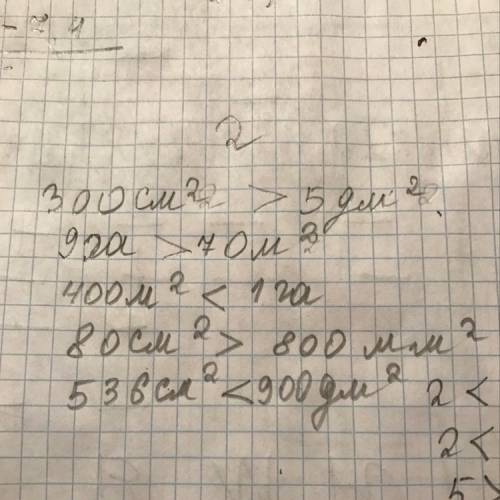 - 7, 1
2
300 см² > 5 дм²
9 га > 70 м²
400 м² < 1 га
80 см² > 800 мм²
536 см² < 900 дм² 2 <
2 <
5 >